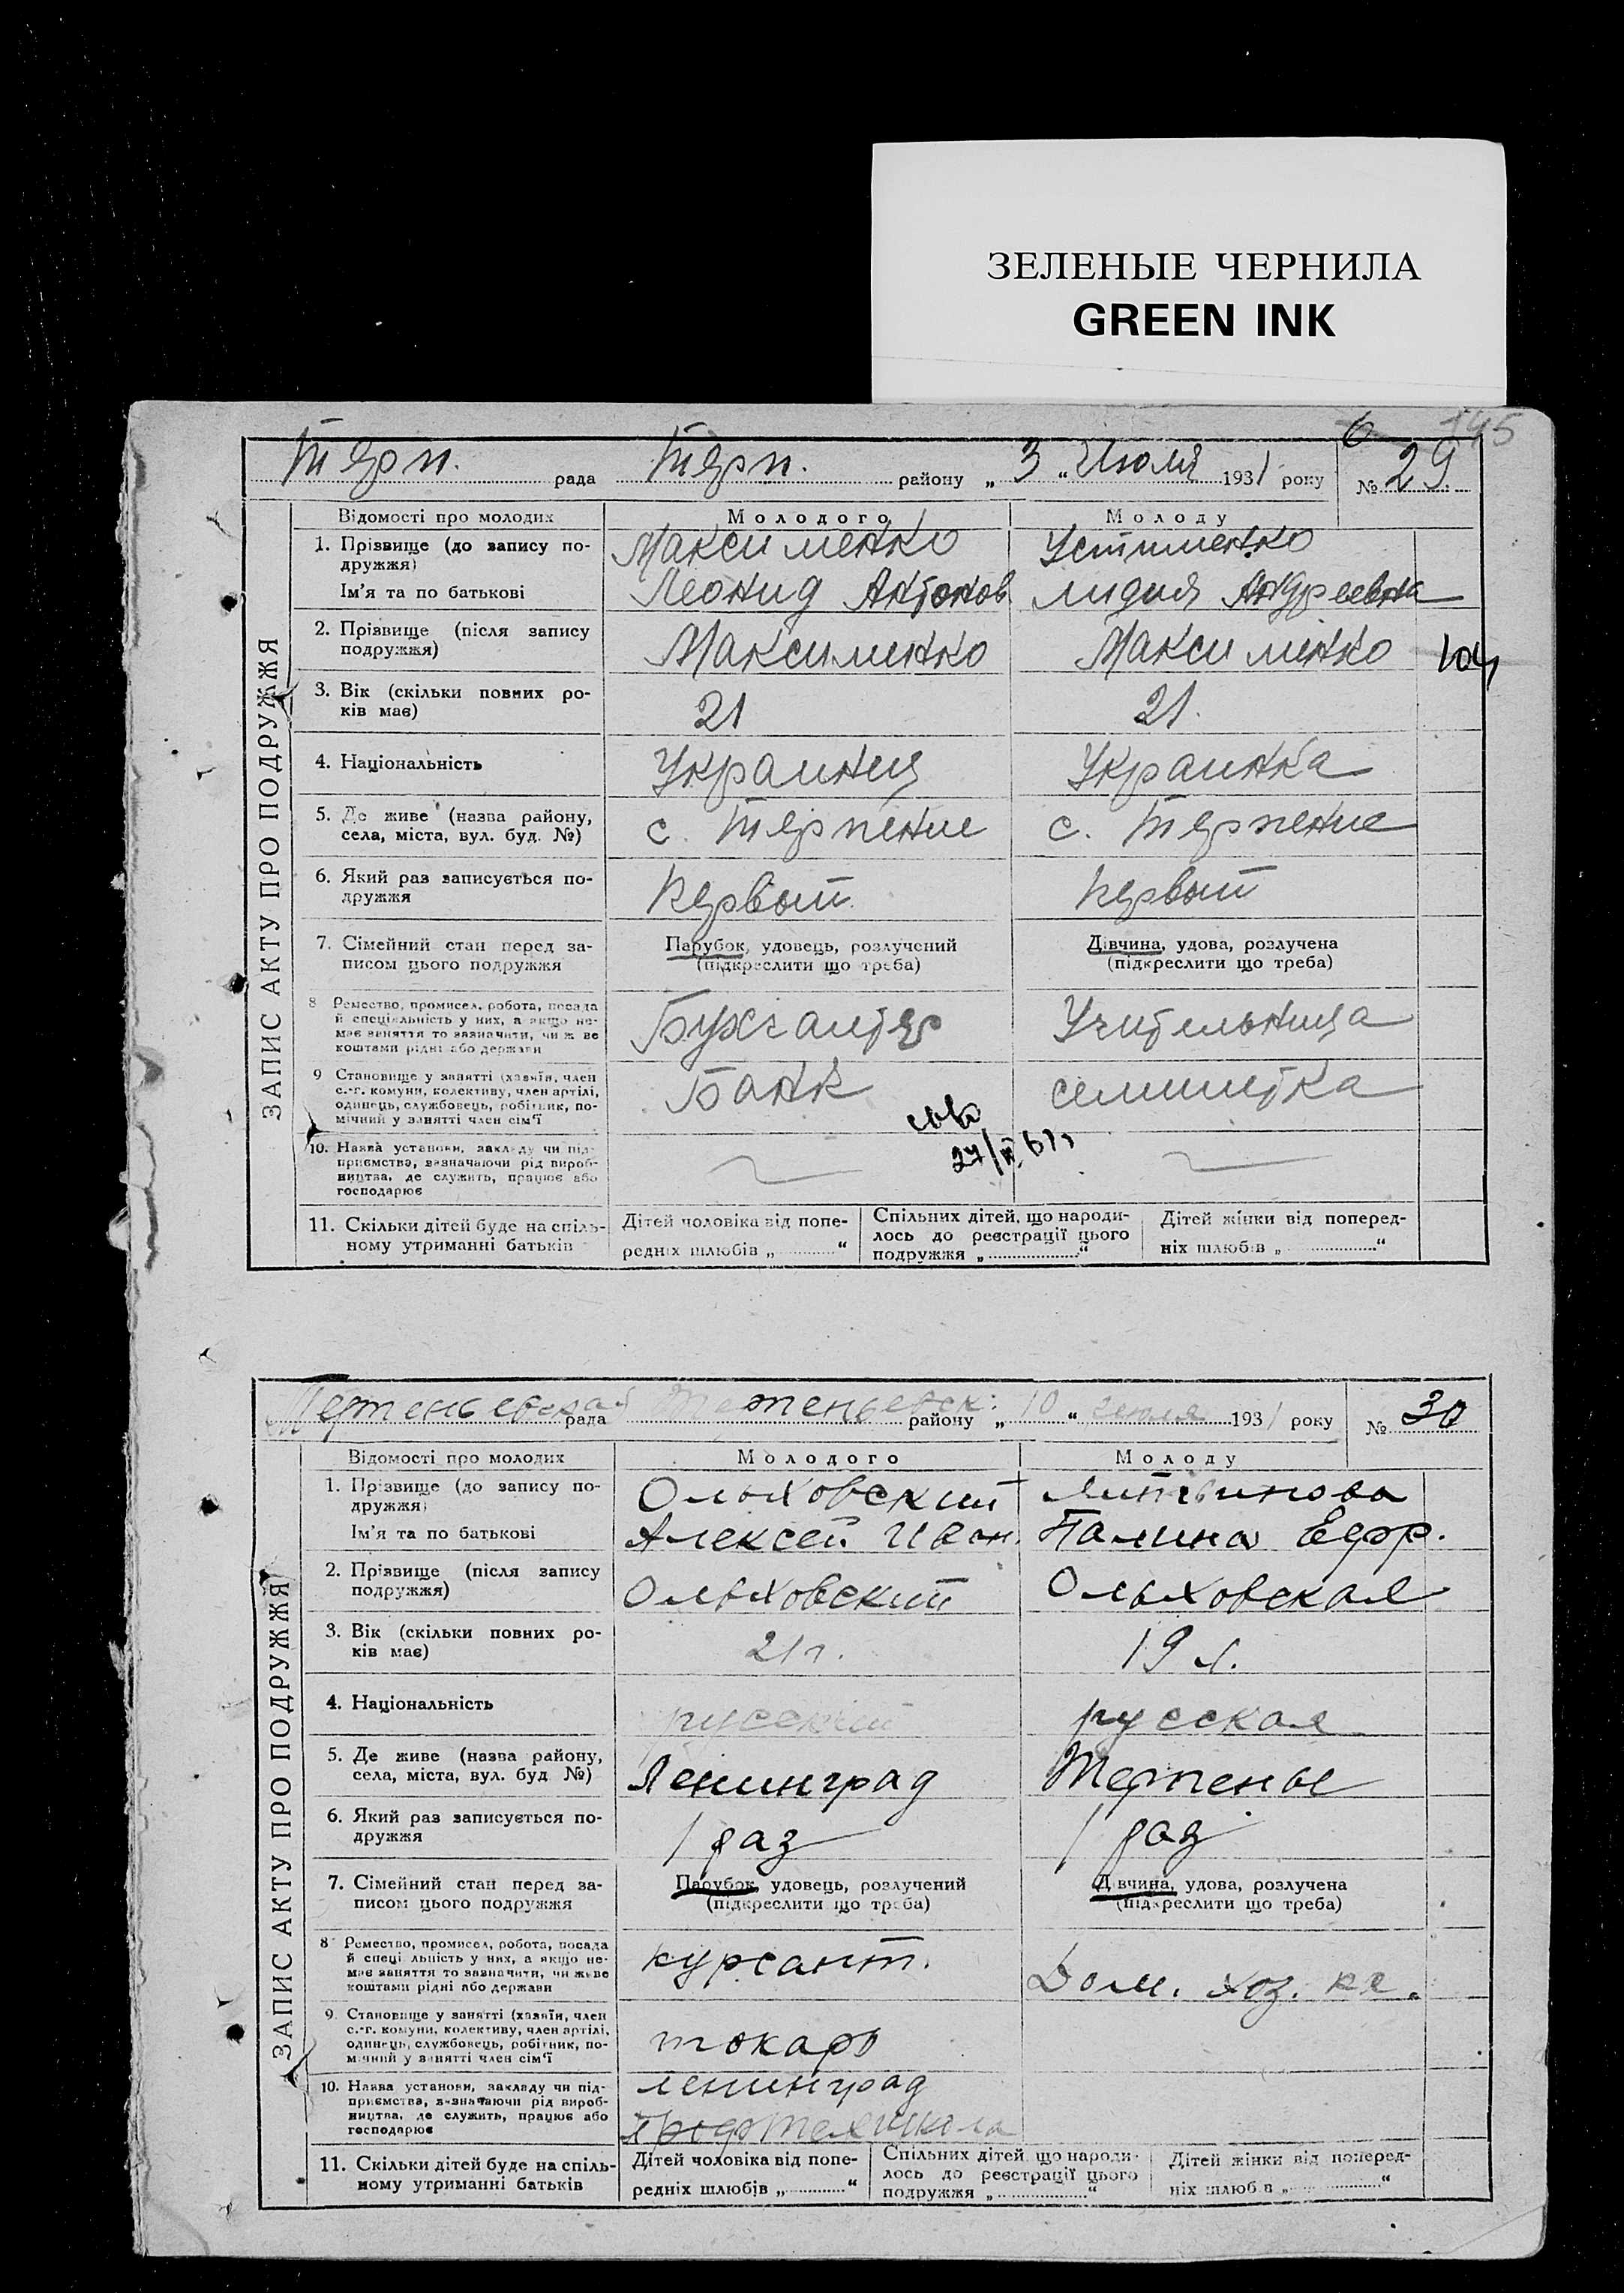 ЗЕЛЕНЫЕ ЧЕРНИЛА
GREEN INK
145
Терп. рада Терп. району „3“ Июля 1931 року № 29
ЗАПИС АКТУ ПРО ПОДРУЖЖЯ
Відомості про молодих Молодого Молоду
1. Прізвище (до запису по-
дружжя)
Максименко Устименко
Ім'я та по батькові Леонид Антонов Лидия Андреевна
2. Прізвище (після запису
подружжя)
Максименко Максименко
3. Вік (скільки повних ро-
ків має)
21 21.
4. Національність Украинец Украинка
5. Де живе (назва району,
села, міста, вул. буд. №)
с. Терпение с. Терпение
6. Який раз записується по-
дружжя
Первый Первый
7. Сімейний стан перед за-
писом цього подружжя
Парубок, удовець, розлучений
(підкреслити що треба)
Дівчина, удова, розлучена
(підкреслити що треба)
8 Ремество, промисел, робота, посада
й спеціяльність у них, а якщо не-
має заняття то зазначити, чи живе
коштами рідні або держави
Бухгалтер Учительница
9 Становище у занятті (хазяїн, член
с.-г. комуни, колективу, член артілі,
одинець, службовець, робітник, по-
мічний у занятті член сім'ї
Банк семилетка
10. Назва установи, закладу чи під-
приємства, зазначаючи рід вироб-
ництва, де служить, працює або
господарює
11. Скільки дітей буде на спіль-
ному утриманні батьків
Дітей чоловіка від попе-
редніх шлюбів „ “
Спільних дітей, що народи-
лось до реєстрації цього
подружжя „ “
Дітей жінки від поперед-
ніх шлюбів „ “
рада району „10“ июля 1931 року № 30
ЗАПИС АКТУ ПРО ПОДРУЖЖЯ
Відомості про молодих Молодого Молоду
1. Прізвище (до запису по-
дружжя)
Ольховский Литвинова
Ім'я та по батькові Алексей Иван. Палина Ефр.
2. Прізвище (після запису
подружжя)
Ольховский Ольховская
3. Вік (скільки повних ро-
ків має)
21 г. 19 л.
4. Національність русский русская
5. Де живе (назва району,
села, міста, вул. буд №)
Ленинград Терпенье
6. Який раз записується по-
дружжя
1 раз 1 раз
7. Сімейний стан перед за-
писом цього подружжя
Парубок, удовець, розлучений
(підкреслити що треба)
Дівчина, удова, розлучена
(підкреслити що треба)
8 Ремество, промисел, робота, посада
й спеціяльність у них, а якщо не-
має заняття то зазначити, чи живе
коштами рідні або держави
курсант. Дом. хоз.
9. Становище у занятті (хазяїн, член
с.-г. комуни, колективу, член артілі,
одинець, службовець, робітник, по-
мічний у занятті член сім'ї
токарь
10. Назва установи, закладу чи під-
приємства, зазначаючи рід вироб-
ництва, де служить, працює або
господарює
ленинград
11. Скільки дітей буде на спіль-
ному утриманні батьків
Дітей чоловіка від попе-
редніх шлюбів „ “
Спільних дітей що народи-
лось до реєстрації цього
подружжя „ “
Дітей жінки від поперед-
ніх шлюбів „ “